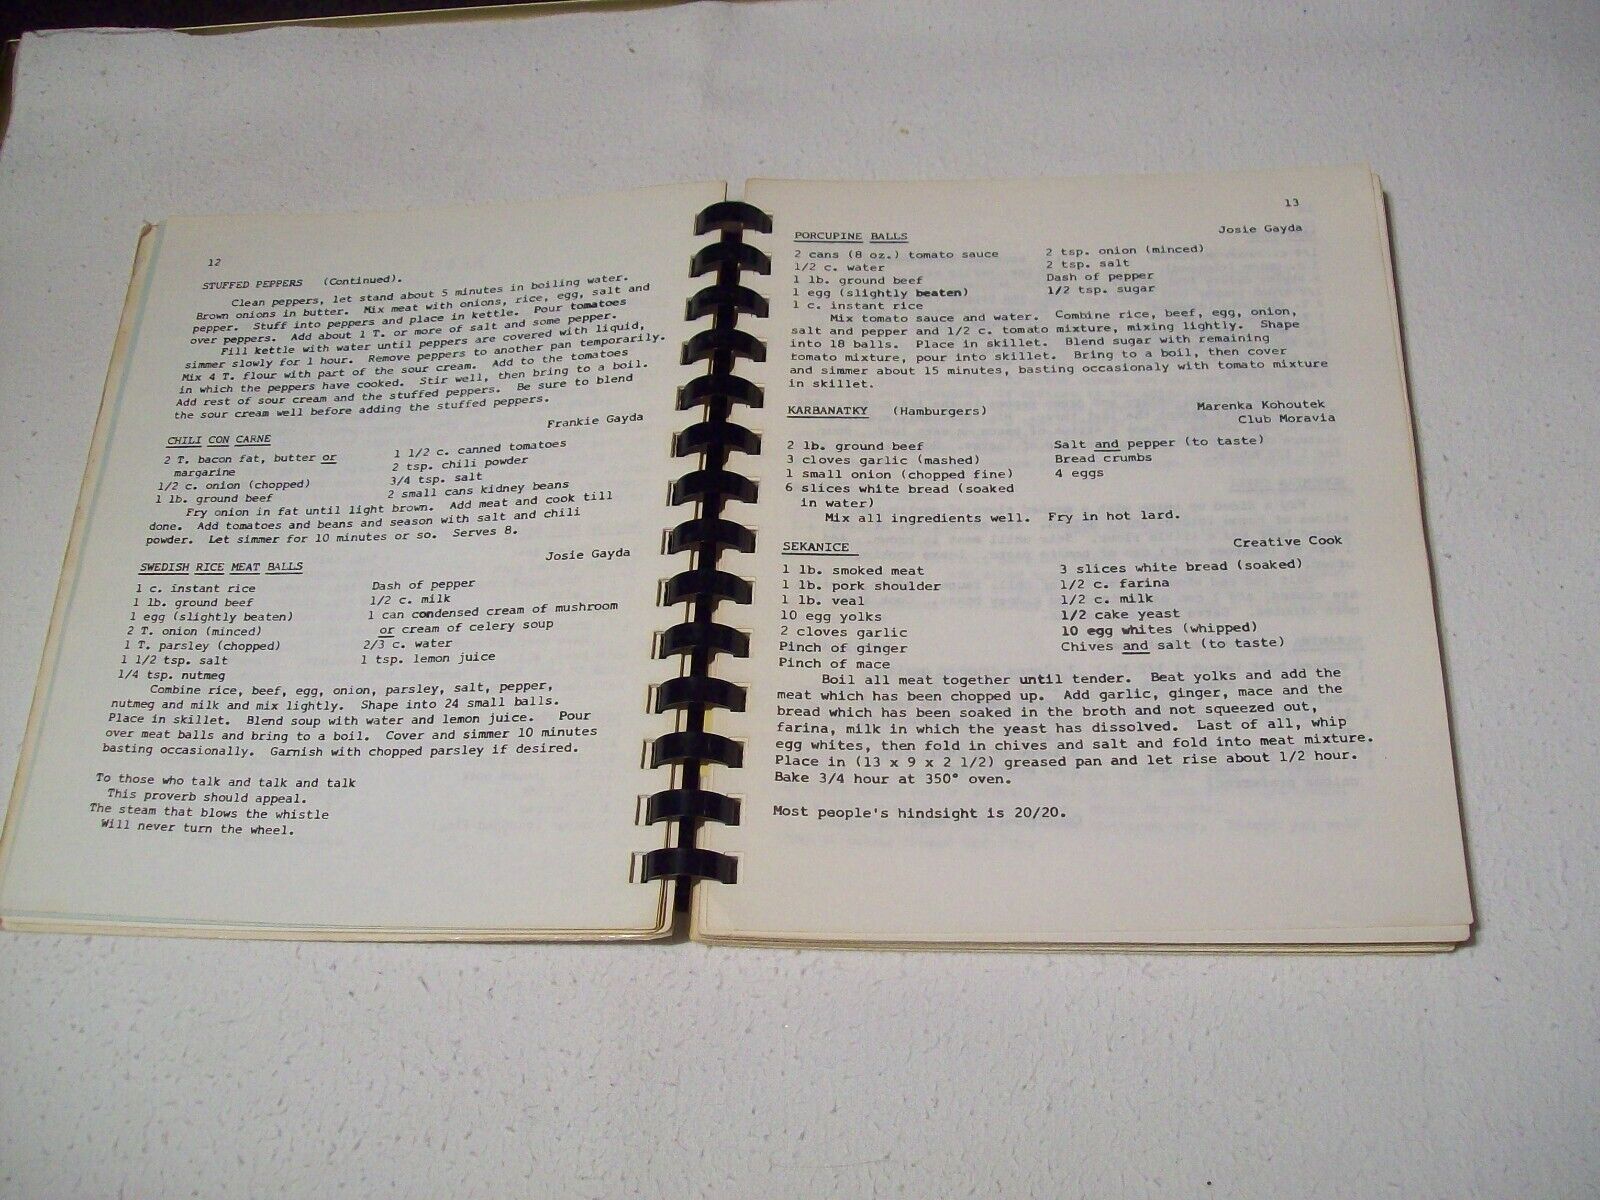 12
STUFFED PEPPERS (Continued).
Clean peppers, let stand about 5 minutes in boiling water.
Brown onions in butter. Mix meat with onions, rice, egg, salt and
pepper. Stuff into peppers and place in kettle. Pour tomatoes
over peppers. Add about 1 T. or more of salt and some pepper.
Fill kettle with water until peppers are covered with liquid,
simmer slowly for 1 hour. Remove peppers to another pan temporarily.
Mix 4 T. flour with part of the sour cream. Add to the tomatoes
in which the peppers have cooked. Stir well, then bring to a boil.
Add rest of sour cream and the stuffed peppers. Be sure to blend
the sour cream well before adding the stuffed peppers.
Frankie Gayda
CHILI CON CARNE
2 T. bacon fat, butter or
margarine
1/2 c. onion (chopped)
1 lb. ground beef
1 1/2 c. canned tomatoes
2 tsp. chili powder
3/4 tsp. salt
2 small cans kidney beans
Fry onion in fat until light brown. Add meat and cook till
done. Add tomatoes and beans and season with salt and chili
powder. Let simmer for 10 minutes or so. Serves 8.
Josie Gayda
SWEDISH RICE MEAT BALLS
1 c. instant rice
1 lb. ground beef
1 egg (slightly beaten)
2 T. onion (minced)
1 T. parsley (chopped)
1 1/2 tsp. salt
1/4 tsp. nutmeg
Dash of pepper
1/2 c. milk
1 can condensed cream of mushroom
or cream of celery soup
2/3 c. water
1 tsp. lemon juice
Combine rice, beef, egg, onion, parsley, salt, pepper,
nutmeg and milk and mix lightly. Shape into 24 small balls.
Place in skillet. Blend soup with water and lemon juice. Pour
over meat balls and bring to a boil. Cover and simmer 10 minutes
basting occasionally. Garnish with chopped parsley if desired.
To those who talk and talk and talk
This proverb should appeal.
The steam that blows the whistle
Will never turn the wheel.
13
PORCUPINE BALLS
Josie Gayda
2 cans (8 oz.) tomato sauce
1/2 c. water
1 lb. ground beef
1 egg (slightly beaten)
1 c. instant rice
2 tsp. onion (minced)
2 tsp. salt
Dash of pepper
1/2 tsp. sugar
Mix tomato sauce and water. Combine rice, beef, egg, onion,
salt and pepper and 1/2 c. tomato mixture, mixing lightly. Shape
into 18 balls. Place in skillet. Blend sugar with remaining
tomato mixture, pour into skillet. Bring to a boil, then cover
and simmer about 15 minutes, basting occasionaly with tomato mixture
in skillet.
KARBANATKY (Hamburgers)
Marenka Kohoutek
Club Moravia
2 lb. ground beef
3 cloves garlic (mashed)
1 small onion (chopped fine)
6 slices white bread (soaked
in water)
Salt and pepper (to taste)
Bread crumbs
4 eggs
Mix all ingredients well. Fry in hot lard.
SEKANICE
Creative Cook
1 lb. smoked meat
1 lb. pork shoulder
1 lb. veal
10 egg yolks
2 cloves garlic
Pinch of ginger
Pinch of mace
3 slices white bread (soaked)
1/2 c. farina
1/2 c. milk
1/2 cake yeast
10 egg whites (whipped)
Chives and salt (to taste)
Boil all meat together until tender. Beat yolks and add the
meat which has been chopped up. Add garlic, ginger, mace and the
bread which has been soaked in the broth and not squeezed out,
farina, milk in which the yeast has dissolved. Last of all, whip
egg whites, then fold in chives and salt and fold into meat mixture.
Place in (13 x 9 x 2 1/2) greased pan and let rise about 1/2 hour.
Bake 3/4 hour at 350° oven.
Most people's hindsight is 20/20.